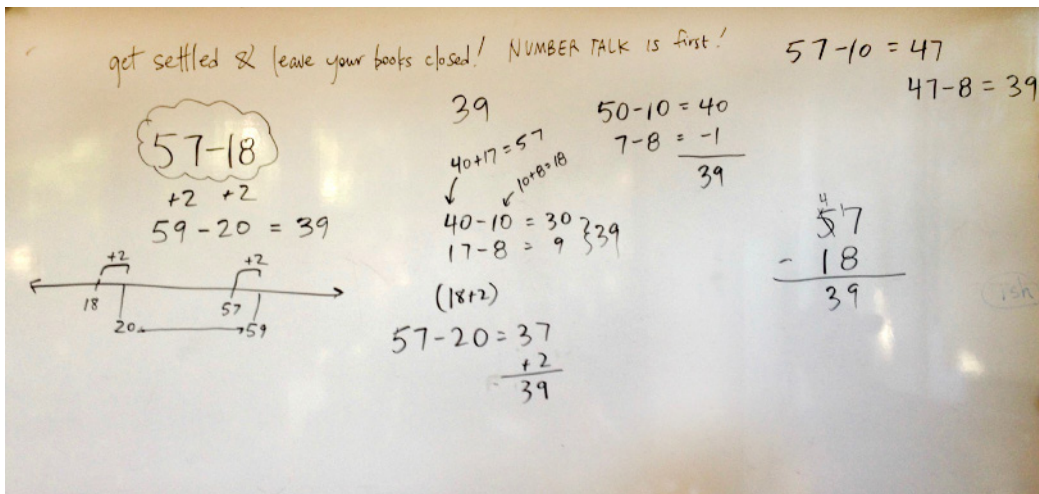 get settled & leave your books closed! NUMBER TALK IS first!
57-18
+2 +2
59-20 = 39
+2 +2
18 57
20 59
39
40+17=57
10+8=18
40-10 = 30
17-8 = 9 }39
(18+2)
57-20=37
+2
39
50-10=40
7-8 = -1
39
57-10=47
47-8=39
4 1
57
- 18
39